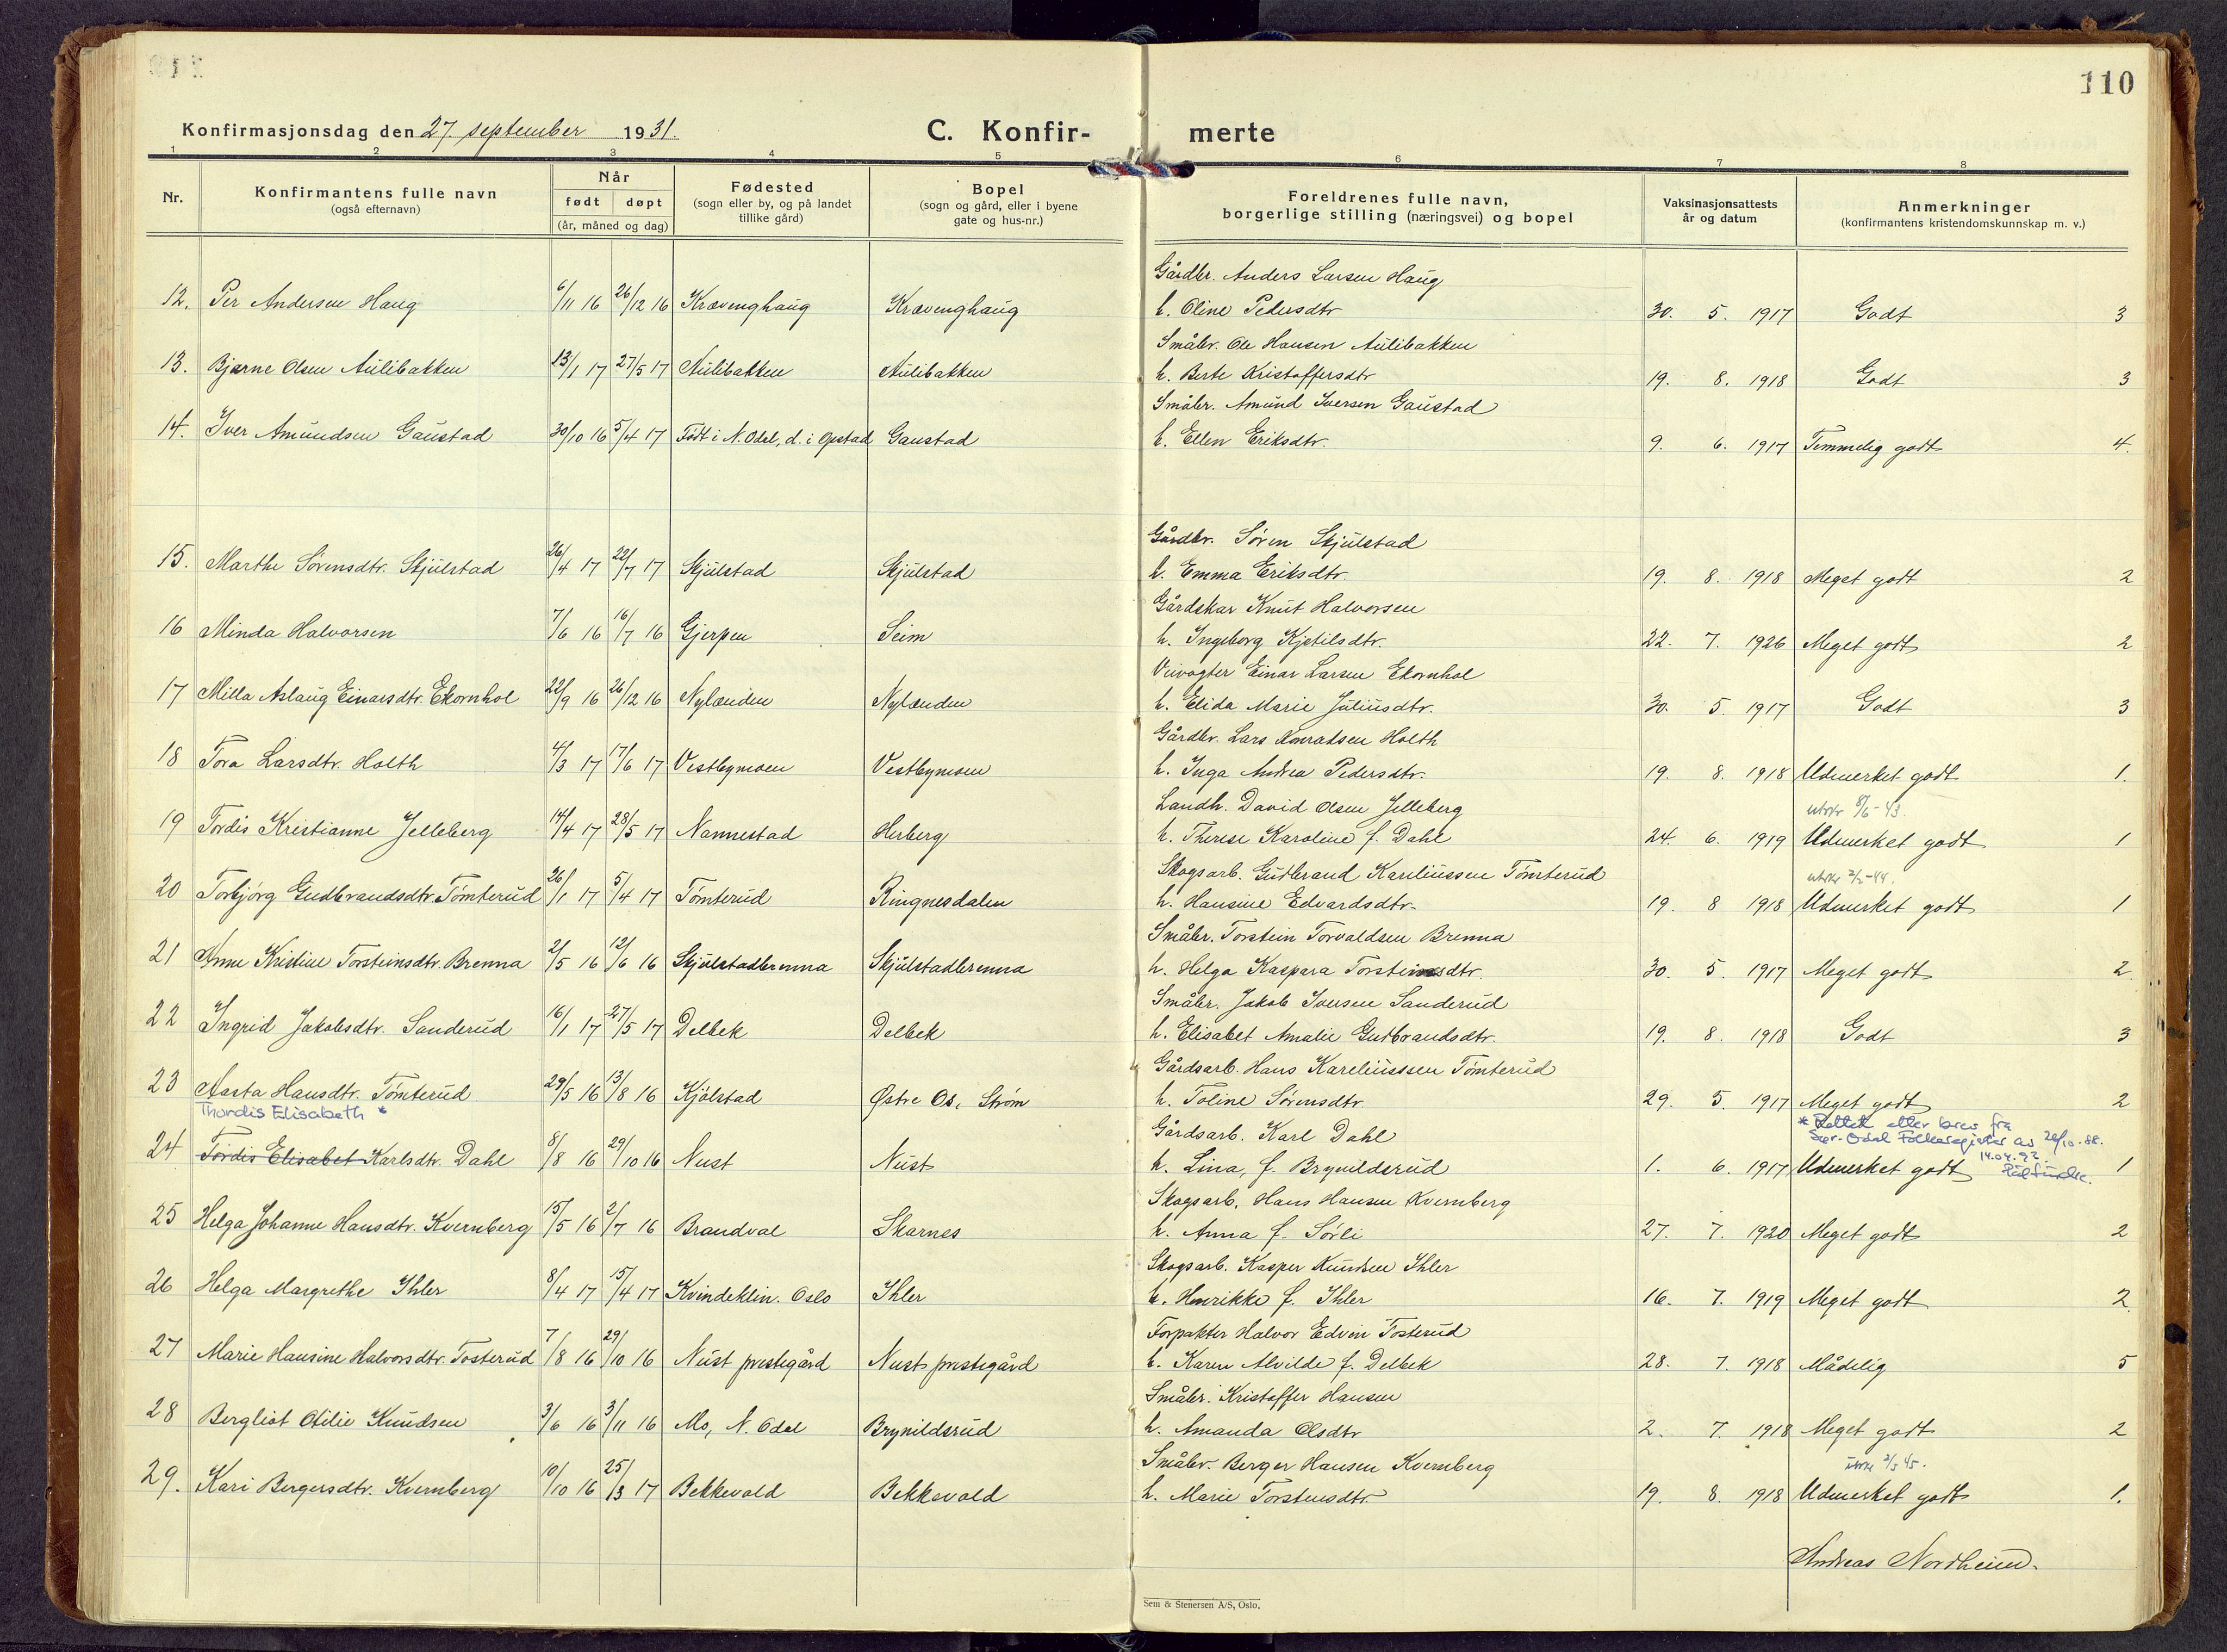 110
Konfirmasjonsdag den 27. september 1931.
C. Konfir- merte
1 2 3 4 5 6 7 8
Nr.
Konfirmantens fulle navn
(også efternavn)
Når
født døpt
(år, måned og dag)
Fødested
(sogn eller by, og på landet
tillike gård)
Bopel
(sogn og gård, eller i byene
gate og hus-nr.)
Foreldrenes fulle navn,
borgerlige stilling (næringsvei) og bopel
Vaksinasjonsattests
år og datum
Anmerkninger
(konfirmantens kristendomskunnskap m. v.)
Gårdbr. Anders Larsen Haug
12. Per Andersen Haug 6/11 16 26/12 16 Kravenghaug Kravenghaug h. Oline Pedersdtr 30. 5. 1917 Godt 3
Småbr. Ole Hansen Aulibakken
13. Bjarne Olsen Aulibakken 13/1 17 27/5 17 Aulibakken Aulibakken h. Berte Kristoffersdtr 19. 8. 1918 Godt 3
Småbr. Amund Iversen Gaustad
14. Iver Amundsen Gaustad 30/10 16 5/4 17 Født i N. Odal, d. i Opstad Gaustad h. Ellen Eriksdtr. 9. 6. 1917 Temmelig godt 4.
Gårdbr. Søren Skjulstad
15. Marthe Sørensdtr. Skjulstad 26/4 17 22/7 17 Skjulstad Skjulstad h. Emma Eriksdtr. 19. 8. 1918 Meget godt 2
Gårdskar Knut Halvorsen
16 Minda Halvorsen 7/6 16 16/7 16 Gjerpen Seim h. Ingeborg Kjetilsdtr. 22. 7. 1926 Meget godt 2
Veivogter Einar Larsen Ekornhol
17 Milla Aslaug Einarsdtr. Ekornhol 22/9 16 26/12 16 Nylænden Nylænden h. Elida Marie Juliusdtr. 30. 5. 1917 Godt 3
Gårdbr. Lars Konradsen Holth
18 Tora Larsdtr. Holth 4/3 17 17/6 17 Vestbymoen Vestbymoen h. Inga Andrea Pedersdtr. 19. 8. 1918 Udmerket godt 1.
Landh. David Olsen Jelleberg utskr 8/6-43.
19 Tordis Kristianne Jelleberg 14/4 17 28/5 17 Nannestad Herberg h. Therese Karoline f. Dahl 24. 6. 1919 Udmerket godt 1
Skogsarb. Gudbrand Kareliussen Tømterud utskr 2/2-44.
20 Torbjørg Gudbrandsdtr. Tømterud 26/1 17 5/4 17 Tømterud Ringnesdalen h. Hansine Edvardsdtr. 19. 8 1918 Udmerket godt 1
Småbr. Torstein Torvaldsen Brenna
21 Anne Kristine Torsteinsdtr. Brenna 2/5 16 12/6 16 Skjulstadbrenna Skjulstadbrenna h. Helga Kaspara Torsteinsdtr. 30. 5. 1917 Meget godt 2.
Småbr. Jakob Iversen Sanderud
22 Ingrid Jakobsdtr. Sanderud 16/1 17 27/5 17 Delbek Delbek h. Elisabet Amalie Gudbrandsdtr. 19. 8. 1918 Godt 3
Gårdsarb. Hans Kareliusssen Tømterud
23 Aasta Hansdtr. Tømterud 29/5 16 13/8 16 Kjølstad Østre Os, Strøm h. Toline Sørensdtr 29. 5. 1917 Meget godt 2
Thordis Elisabeth * Gårdsarb. Karl Dahl * Rettet etter brev fra
Sør-Odal Folkeregister av 20/10-88.
14.04.92
24 Tordis Elisabet Karlsdtr. Dahl 8/8 16 29/10 16 Nust Nust h. Lina, f. Brynilderud 1. 6. 1917 Udmerket godt 1
Skogsarb. Hans Hansen Kvernberg
25 Helga Johanne Hansdtr. Kvernberg 15/5 16 2/7 16 Brandval Skarnes h. Anna f. Sørli 27. 7. 1920 Meget godt 2
Skogsarb. Kasper Knudsen Ihler
26 Helga Margrethe Ihler 8/4 17 15/4 17 Kvindeklin. Oslo Ihler h. Henrikke f. Ihler 16. 7. 1919 Meget godt 2.
Forpakter Halvor Edvin Tosterud
27 Marie Hansine Halvorsdtr. Tosterud 7/8 16 29/10 16 Nust prestegård Nust prestegård h. Karen Alvilde f. Delbek 28. 7. 1918 Mådelig 5
Småbr. Kristoffer Hansen
28 Bergliot Otilie Knudsen 3/6 16 3/11 16 Mo, N. Odal Brynildsrud h. Amanda Olsdtr 2. 7. 1918 Meget godt 2
Småbr. Berger Hansen Kvernberg utskr 2/5 45.
29. Kari Bergersdtr. Kvernberg 10/10 16 25/3 17 Bekkevold Bekkevold h. Marie Torstensdtr 19. 8. 1918 Udmerket godt 1.
Andreas Nordheim.
Sem & Stenersen A/S, Oslo.